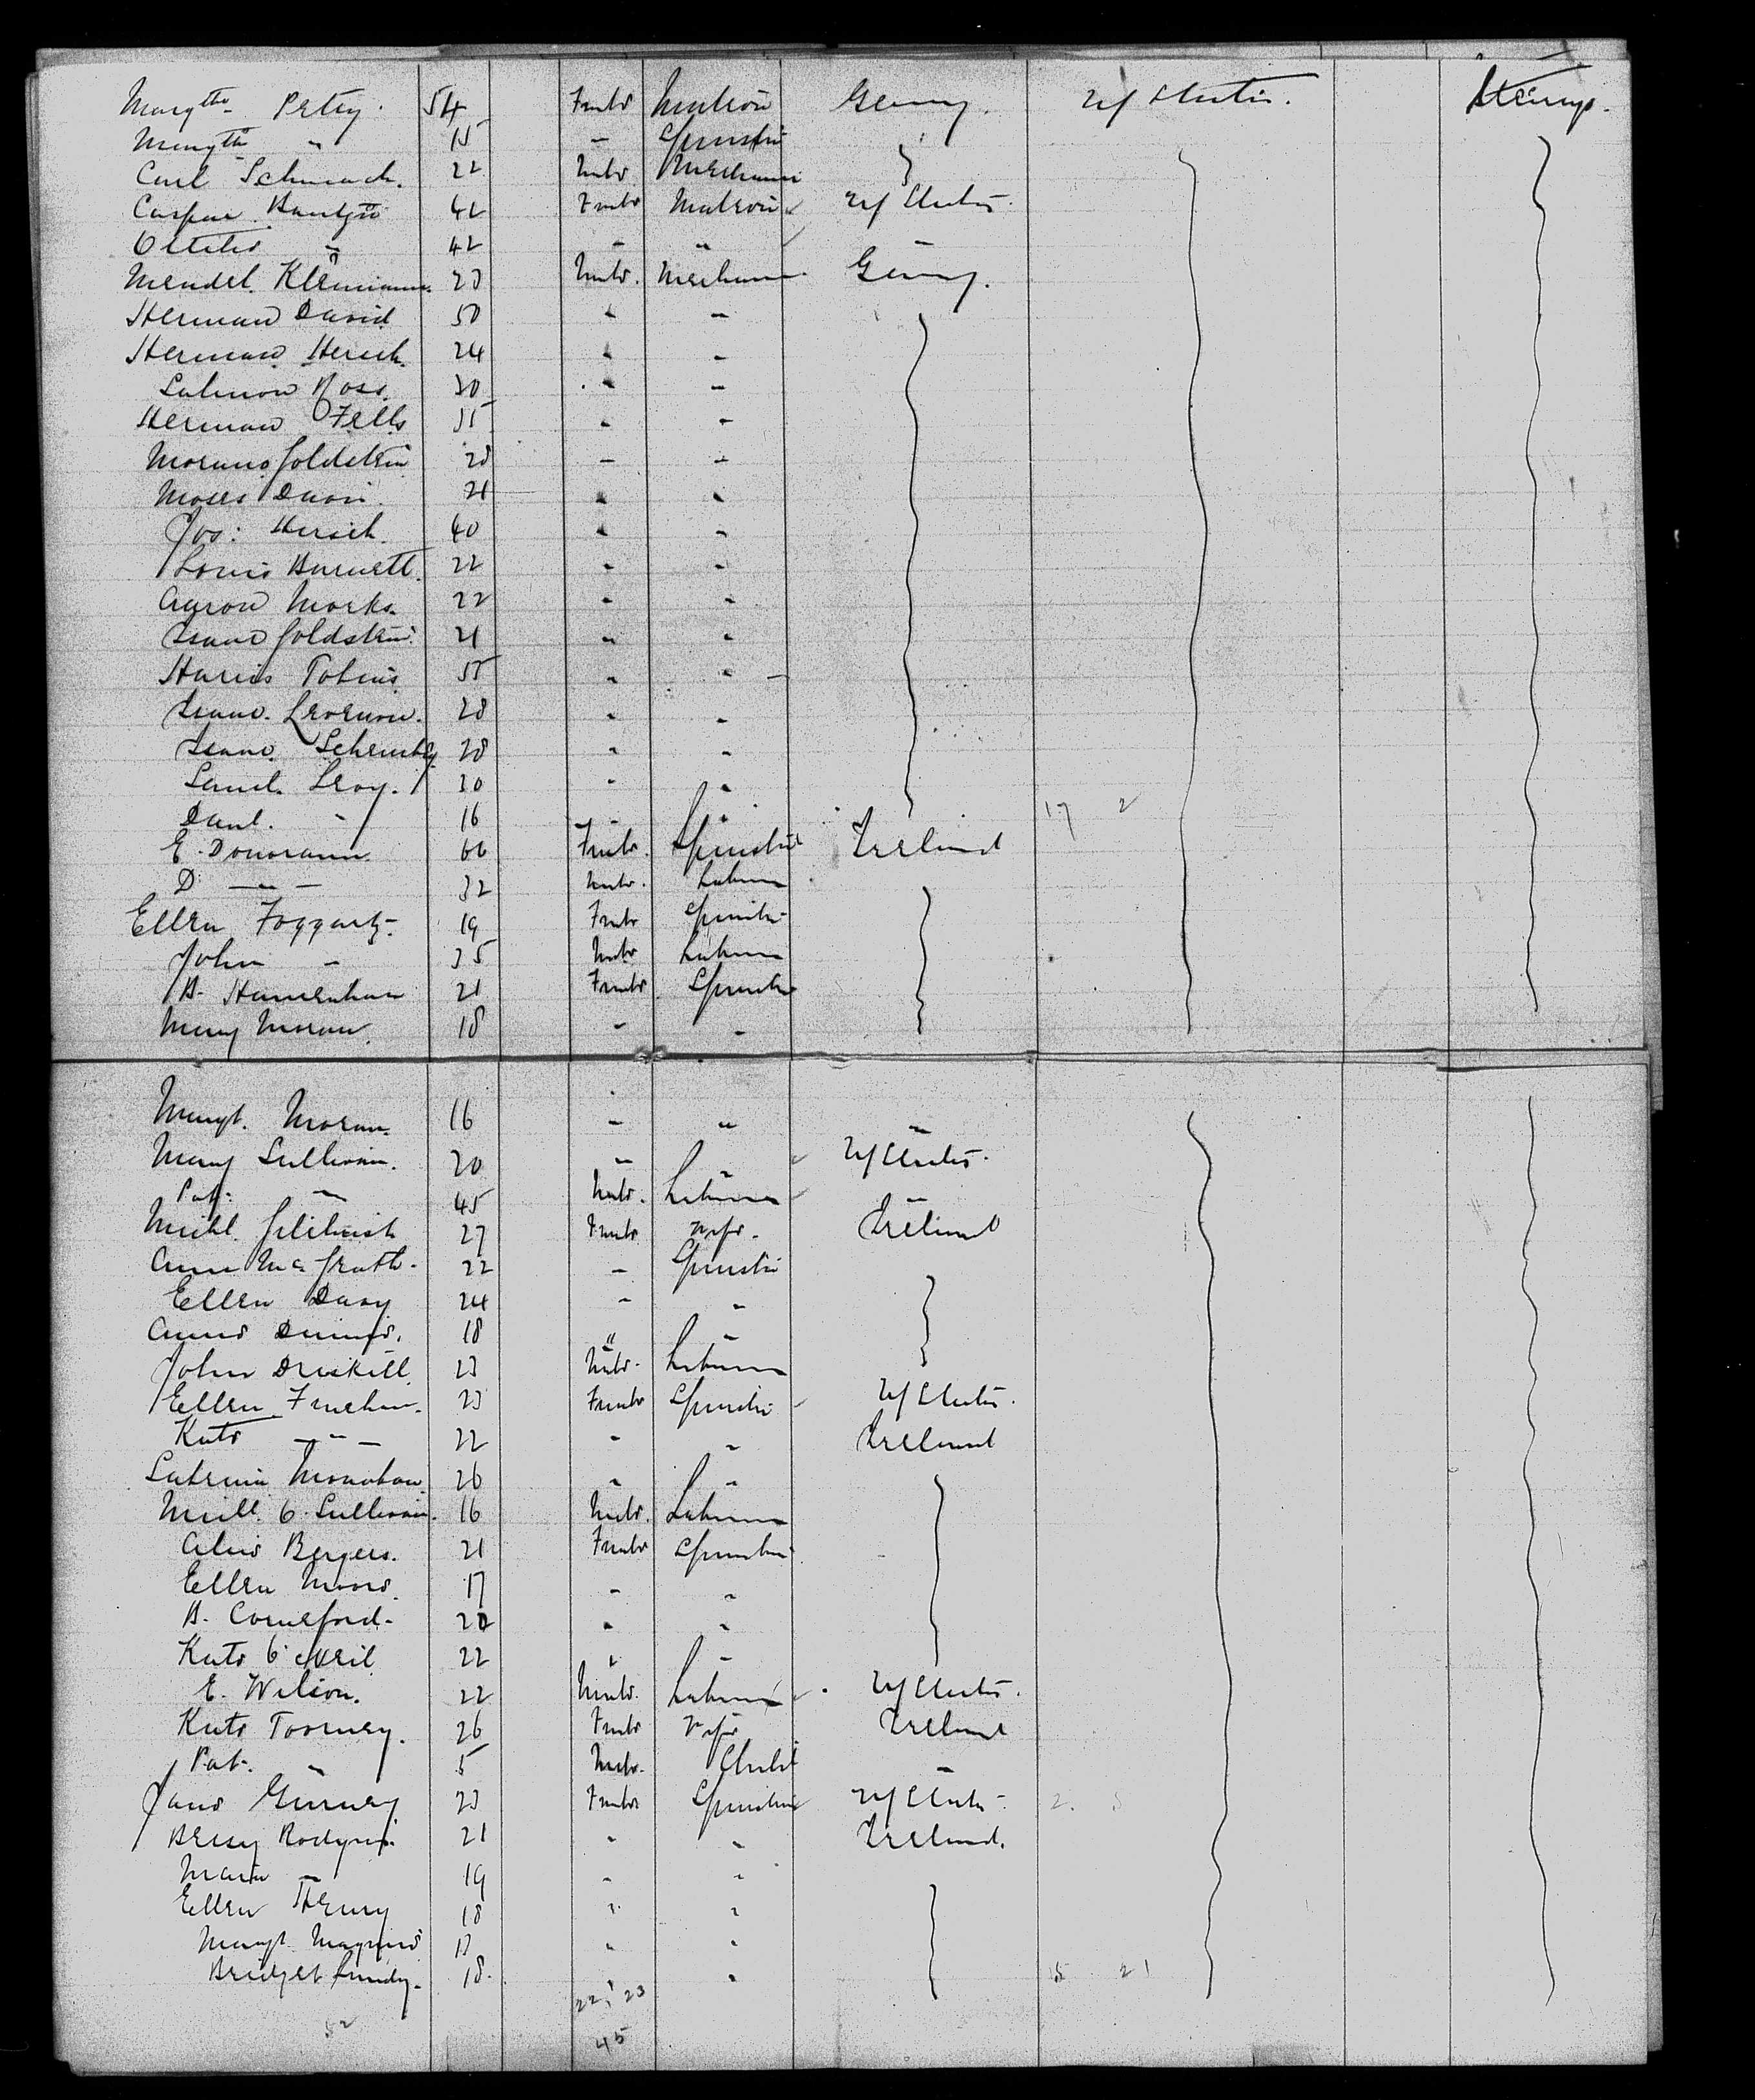 Margth Petry. 54 Female Matron Germy. U/States. Steerage.
Margth " 15 - Spinster
Carl Schmach. 22 Male Mechanic
Caspar 42 Female Matron U/States.
42 - "
Mendel. Kleimann. 23 Male. Mechanic Germy.
Herman David 50 " -
Herman Hersch. 24 " -
Salmon Ross. 30 " -
Herman Fells 35 " -
Goldstein 28 - -
Moses Davis. 21 " "
Jos: Hersch. 40 " "
Louis Barnett. 22 " "
Aaron Marks. 22 " "
Isaac Goldstein. 21 " "
Harris Tobias 55 " "
Isaac. 28 " "
Isaac. 28 " "
Saml. Levy. 30 " "
Danl. " 16 - " 17 2
E. Donovann 60 Female. Spinster Ireland
D - " - 32 Male. Laborer
Ellen Foggarty. 19 Female Spinster
John - 35 Male Laborer
B. 21 Female Spinster
Mary Moran. 18 - -
Margt. Moran. 16 - " "
Mary Sullivan. 20 " " U/States.
Pat. " 45 Male. Laborer "
Michl. Gilchrist 27 Female Wife. Ireland
Ann McGrath. 22 - Spinster
Ellen Davy 24 - "
Annie 18 " "
John Driskill. 23 Male. Laborer
Ellen 23 Female Spinster U/States.
Kate - " - 22 - " Ireland
Monahan 20 " "
Michl. O. Sullivan. 16 Male. Laborer
Alice Bergers. 21 Female Spinster
Ellen 17 - "
B. Comerford. 20 " "
Kate O'Neil 22 " "
E. Wilson. 22 Male. Laborer U/States.
Kate Toomey. 26 Female Wife Ireland
Pat. " 5 Male. Child "
Jane 23 Female Spinster U/States.
Bessy 21 " " Ireland.
Maria " 19 " "
Ellen Henry 18 " "
Margt. 17 " "
Bridget Lundy. 18. " 21
22 23
52
45